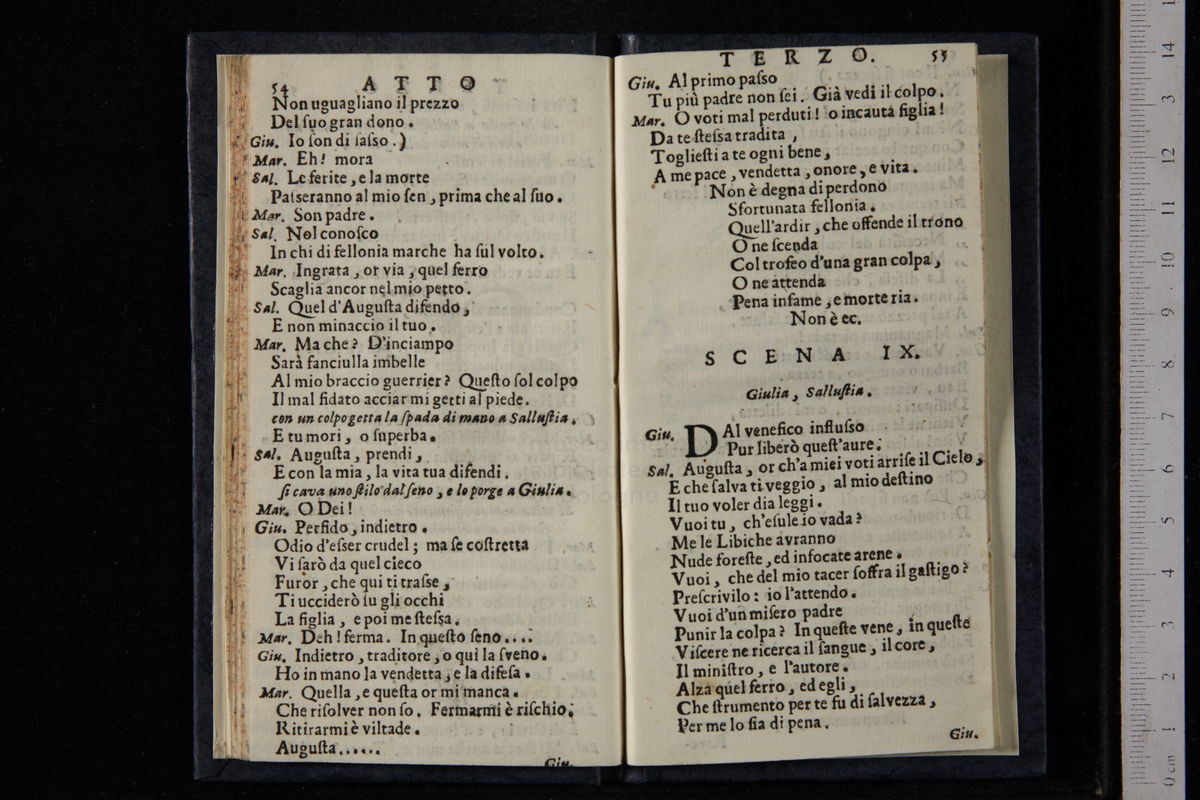 54 ATTO
Non uguagliano il prezzo
Del ſuo gran dono.
Giu. Io ſon di ſaſso.)
Mar. Eh! mora
Sal. Le ferite, e la morte
Paſseranno al mio ſen, prima che al ſuo.
Mar. Son padre.
Sal. Nol conoſco
In chi di fellonia marche ha ſul volto.
Mar. Ingrata, or via, quel ferro
Scaglia ancor nel mio petto.
Sal. Quel d'Auguſta difendo,
E non minaccio il tuo.
Mar. Ma che? D'inciampo
Sarà fanciulla imbelle
Al mio braccio guerrier? Queſto ſol colpo
Il mal fidato acciar mi getti al piede.
con un colpo getta la ſpada di mano a Salluſtia.
E tu mori, o ſuperba.
Sal. Auguſta, prendi,
E con la mia, la vita tua difendi.
ſi cava uno ſtilo dal ſeno, e lo porge a Giulia.
Mar. O Dei!
Giu. Perfido, indietro.
Odio d'eſser crudel; ma ſe coſtretta
Vi ſarò da quel cieco
Furor, che qui ti traſse,
Ti ucciderò ſu gli occhi
La figlia, e poi me ſteſsa.
Mar. Deh! ferma. In queſto ſeno....
Giu. Indietro, traditore, o qui la ſveno.
Ho in mano la vendetta, e la difeſa.
Mar. Quella, e queſta or mi manca.
Che riſolver non ſo. Fermarmi è riſchio.
Ritirarmi è viltade.
Auguſta......
Giu.
TERZO. 55
Giu. Al primo paſso
Tu più padre non ſei. Già vedi il colpo.
Mar. O voti mal perduti! o incauta figlia!
Da te ſteſsa tradita,
Toglieſti a te ogni bene,
A me pace, vendetta, onore, e vita.
Non è degna di perdono
Sfortunata fellonia.
Quell'ardir, che offende il trono
O ne ſcenda
Col trofeo d'una gran colpa,
O ne attenda
Pena infame, e morte ria.
Non è ec.
SCENA IX.
Giulia, Salluſtia.
Giu. DAl venefico influſso
Pur liberò queſt'aure.
Sal. Auguſta, or ch'a miei voti arriſe il Cielo,
E che ſalva ti veggio, al mio deſtino
Il tuo voler dia leggi.
Vuoi tu, ch'eſule io vada?
Me le Libiche avranno
Nude foreſte, ed infocate arene.
Vuoi, che del mio tacer ſoffra il gaſtigo?
Preſcrivilo: io l'attendo.
Vuoi d'un miſero padre
Punir la colpa? In queſte vene, in queſte
Viſcere ne ricerca il ſangue, il core,
Il miniſtro, e l'autore.
Alza quel ferro, ed egli,
Che ſtrumento per te fu di ſalvezza,
Per me lo ſia di pena.
Giu.